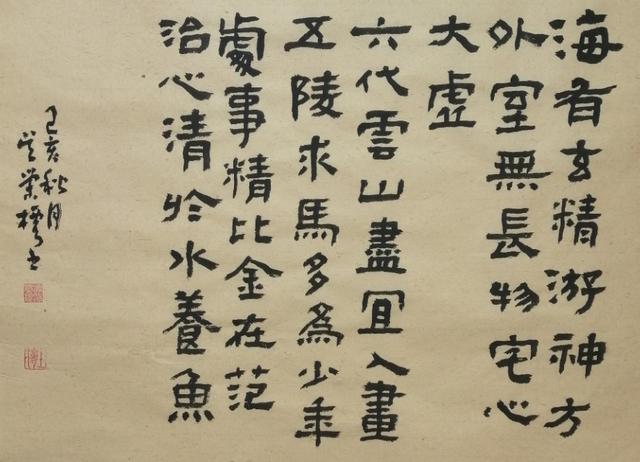 海有玄精游神方
外室無長物宅心
大虛
六代雲山盡宜入畫
五陵求馬多為少年
處事精比金在范
治心清於水養魚
己亥秋月
書